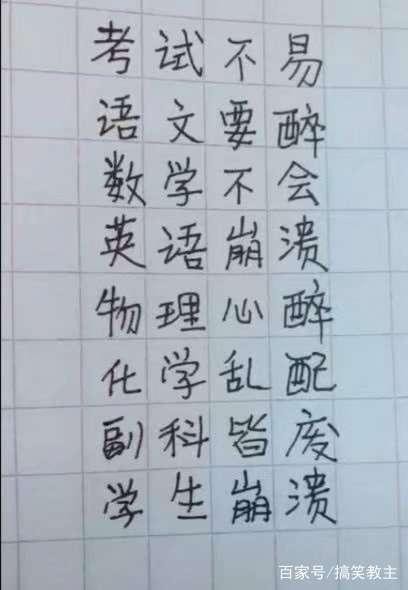 考试不易
语文要醉
数学不会
英语崩溃
物理心醉
化学乱配
副科皆废
学生崩溃
百家号/搞笑教主